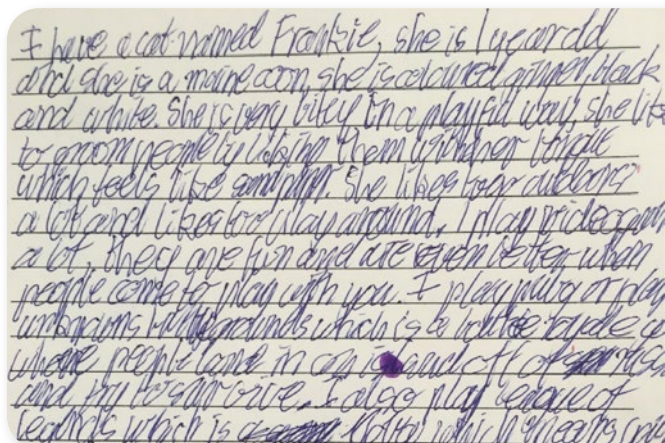 I have a cat named Frankie, she is 1 year old
and she is a maine coon, she is coloured ginger, black
and white. She is very bitey in a playful way, she like
to groom people by licking them with her tongue
which feels like She likes outdoors
a lot and likes to play around. I play videogam
a lot, they are fun and are even better when
people come to play with you. I play pubg or play
unknowns battlegrounds which is a battle royale
where people land in and off of
and try to survive. I also play league of
legends which is a